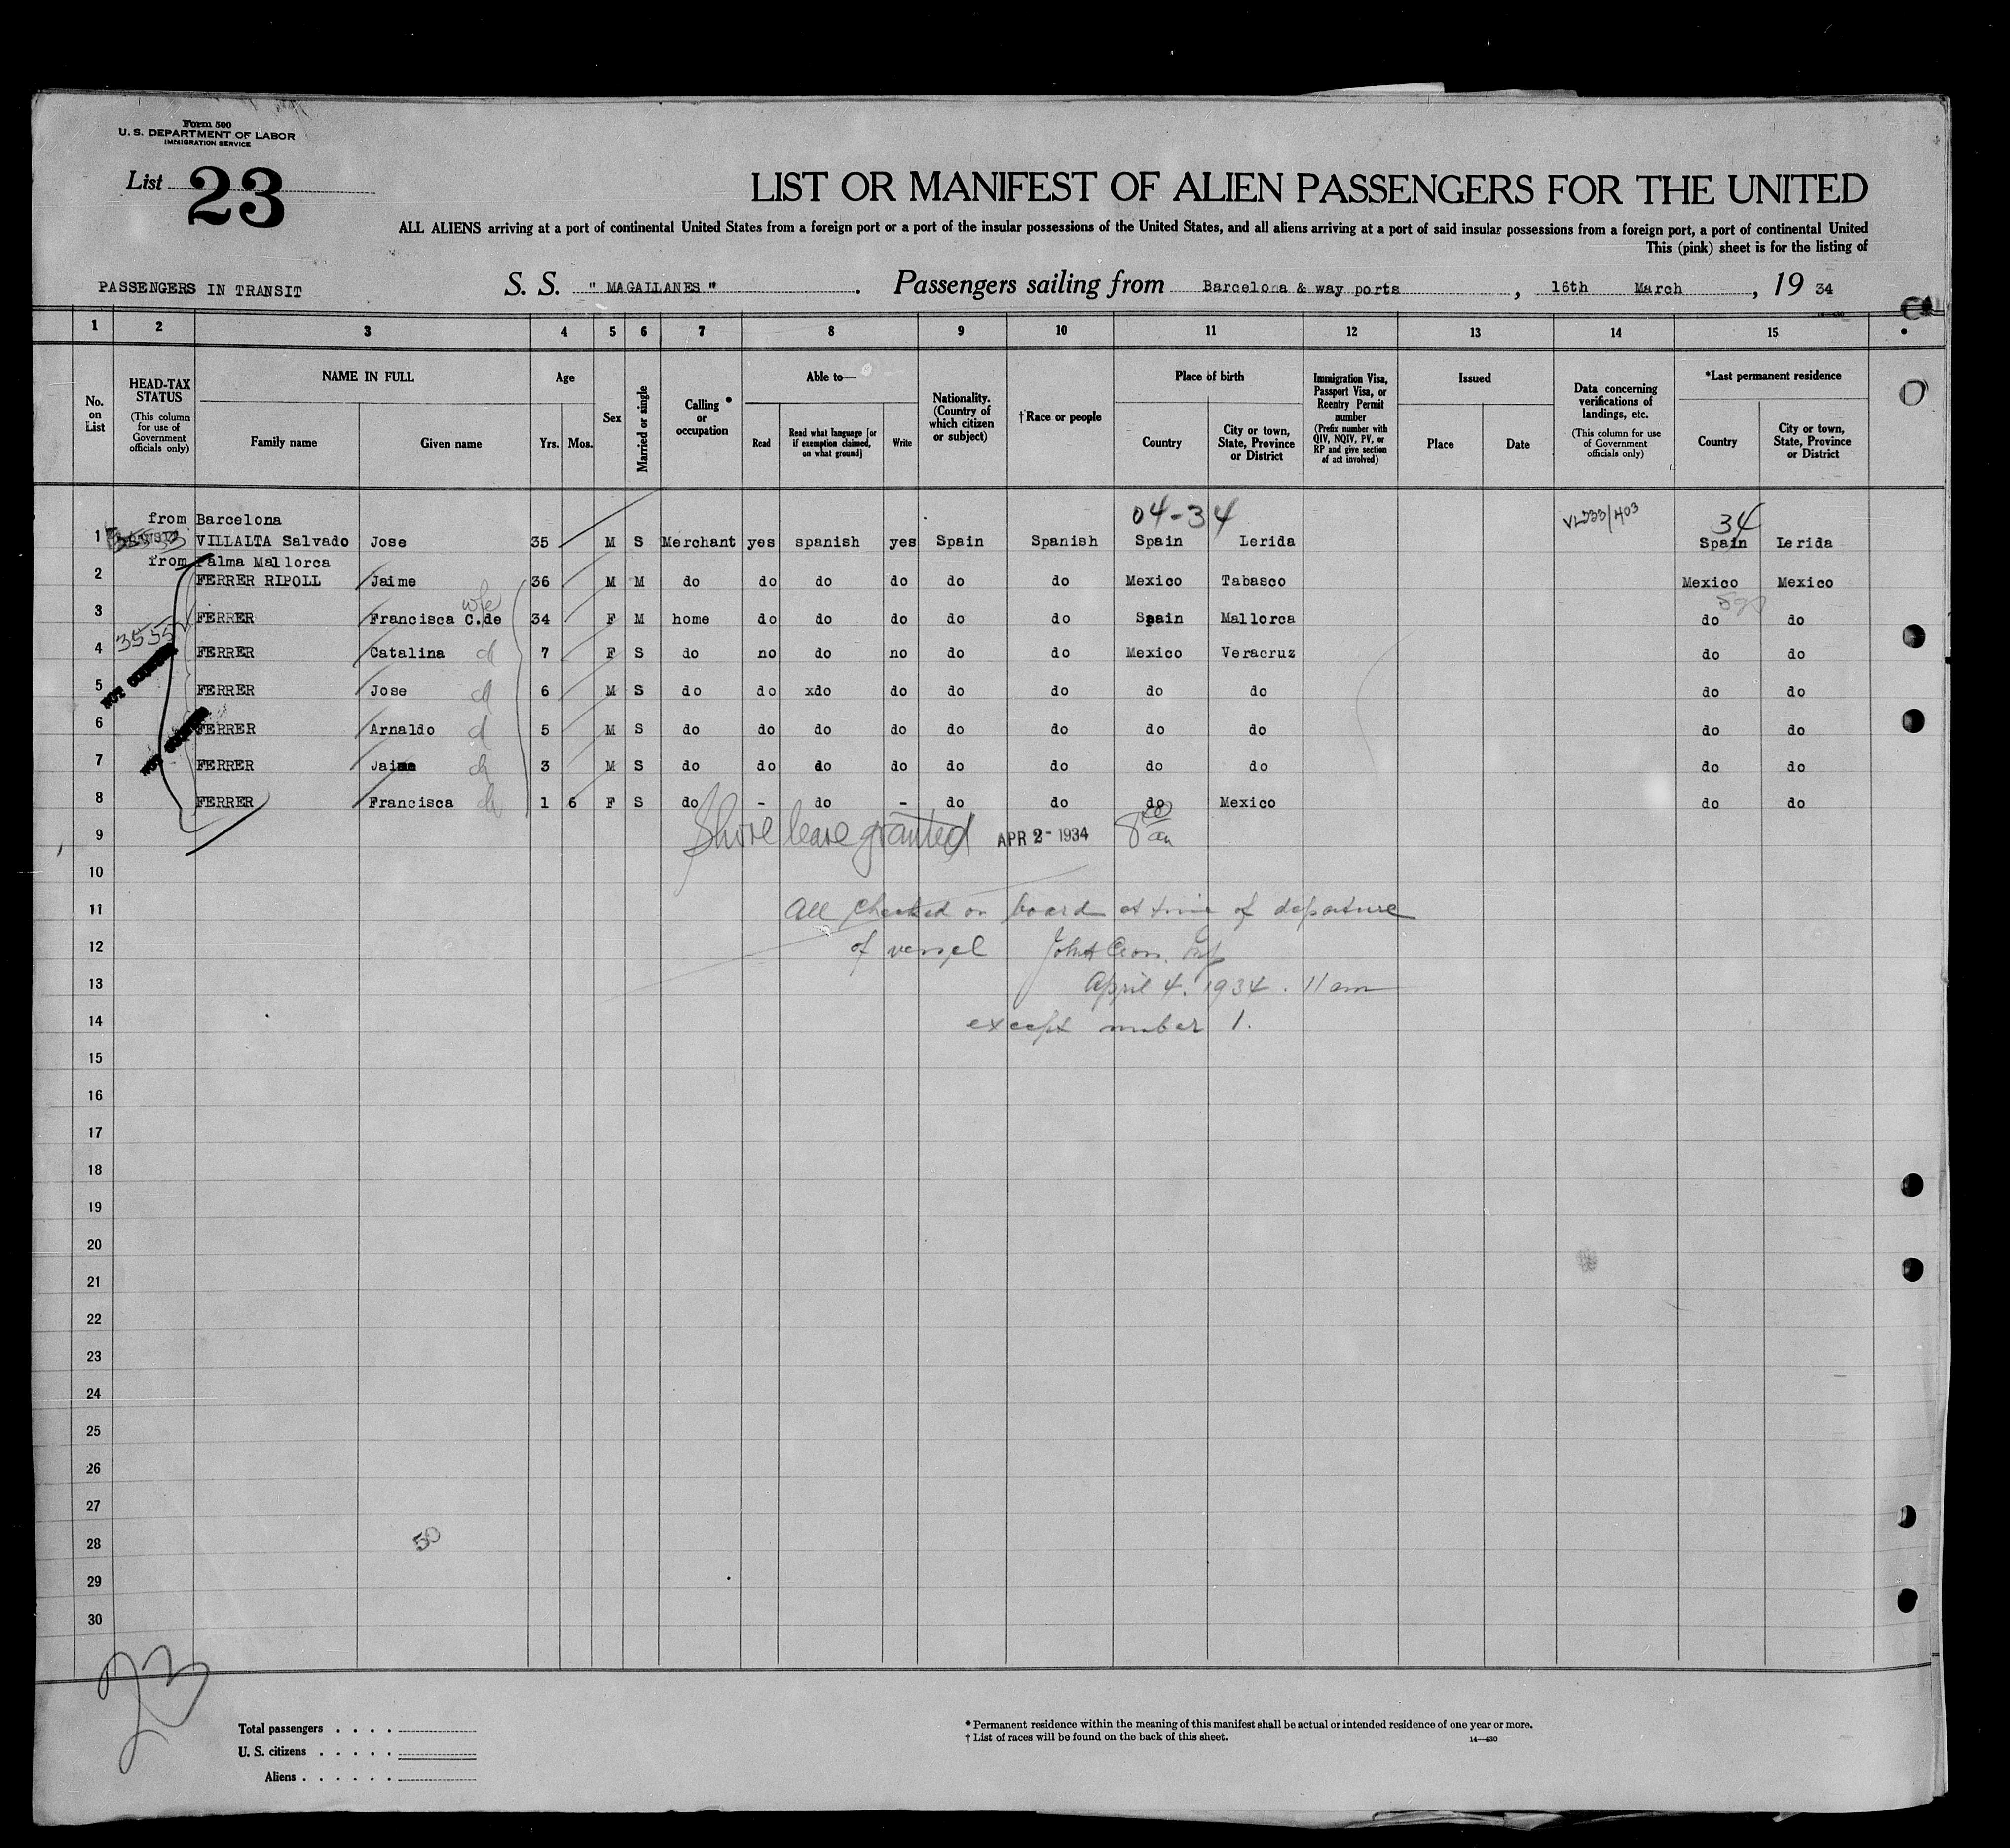 Form 500
U. S. DEPARTMENT OF LABOR
IMMIGRATION SERVICE
List 23
LIST OR MANIFEST OF ALIEN PASSENGERS FOR THE UNITED
ALL ALIENS arriving at a port of continental United States from a foreign port or a port of the insular possessions of the United States, and all aliens arriving at a port of said insular possessions from a foreign port, a port of continental United
This (pink) sheet is for the listing of
PASSENGERS IN TRANSIT S. S. " MAGALLANES " . Passengers sailing from Barcelona & way ports , 16th March , 19 34
1 2 3 4 5 6 7 8 9 10 11 12 13 14 15
No. on List
HEAD-TAX STATUS (This column for use of Government officials only)
NAME IN FULL Family name Given name
Age Yrs. Mos.
Sex
Married or single
Calling or occupation *
Able to— Read Read what language [or if exemption claimed, on what ground] Write
Nationality. (Country of which citizen or subject)
†Race or people
Place of birth Country City or town, State, Province or District
Immigration Visa, Passport Visa, or Reentry Permit number (Prefix number with QIV, NQIV, PV, or RP and give section of act involved)
Issued Place Date
Data concerning verifications of landings, etc. (This column for use of Government officials only)
*Last permanent residence Country City or town, State, Province or District
from Barcelona 04-34 34
1 VILLALTA Salvado Jose 35 M S Merchant yes spanish yes Spain Spanish Spain Lerida Spain Lerida
from Palma Mallorca
2 FERRER RIPOLL Jaime 36 M M do do do do do do Mexico Tabasco Mexico Mexico
wfe
3 FERRER Francisca C.de 34 F M home do do do do do Spain Mallorca do do
3555
4 FERRER Catalina 7 F S do no do no do do Mexico Veracruz do do
5 FERRER Jose 6 M S do do xdo do do do do do do do
6 FERRER Arnaldo 5 M S do do do do do do do do do do
7 FERRER Jaime 3 M S do do do do do do do do do do
8 FERRER Francisca 1 6 F S do - do - do do do Mexico do do
9 Shore leave granted APR 2- 1934 8 00 am
10
11 All checked on board at time of departure
12 of vessel
13 April 4. 1934. 11 am
14 except number 1.
15
16
17
18
19
20
21
22
23
24
25
26
27
28 50
29
30
23
Total passengers . . . .
U. S. citizens . . . . .
Aliens . . . . . .
* Permanent residence within the meaning of this manifest shall be actual or intended residence of one year or more.
† List of races will be found on the back of this sheet. 14—430